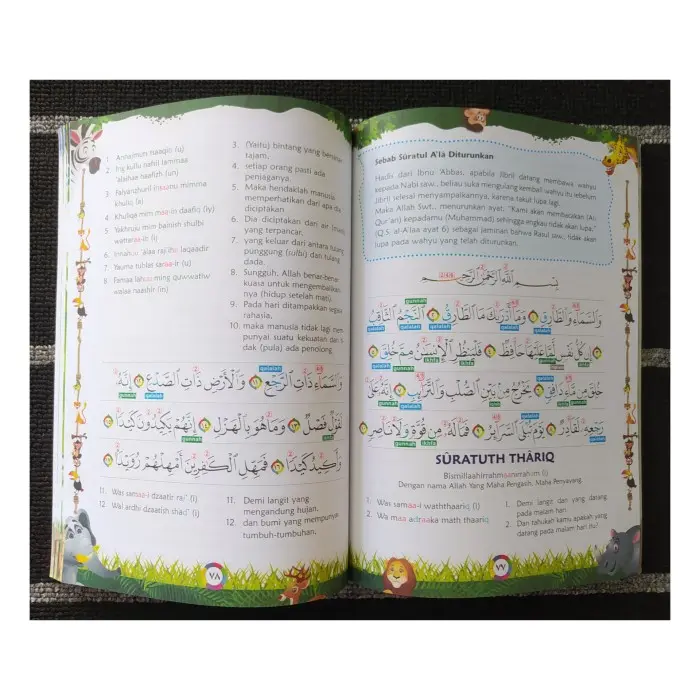 Sebab Sūratul A'lā Diturunkan
Hadis dari Ibnu 'Abbas, apabila Jibril datang membawa wahyu
kepada Nabi saw., beliau suka mengulang kembali wahyu itu sebelum
Jibril selesai menyampaikannya, karena takut lupa lagi.
Maka Allah Swt., menurunkan ayat, "Kami akan membacakan (Al-
Qur'an) kepadamu (Muhammad) sehingga engkau tidak akan lupa."
(Q.S. al-A'laa ayat 6) sebagai jaminan bahwa Rasul saw., tidak akan
lupa pada wahyu yang telah diturunkan.
بِسْمِ اللّٰهِ الرَّحْمٰنِ الرَّحِيْمِ
وَالسَّمَاۤءِ وَالطَّارِقِۙ ١ وَمَآ اَدْرٰىكَ مَا الطَّارِقُۙ ٢ النَّجْمُ الثَّاقِبُۙ
٣ اِنْ كُلُّ نَفْسٍ لَّمَّا عَلَيْهَا حَافِظٌۗ ٤ فَلْيَنْظُرِ الْاِنْسَانُ مِمَّ خُلِقَۗ ٥
خُلِقَ مِنْ مَّاۤءٍ دَافِقٍۙ ٦ يَّخْرُجُ مِنْۢ بَيْنِ الصُّلْبِ وَالتَّرَاۤىِٕبِۗ ٧ اِنَّهٗ عَلٰى
رَجْعِهٖ لَقَادِرٌۗ ٨ يَوْمَ تُبْلَى السَّرَاۤىِٕرُۙ ٩ فَمَا لَهٗ مِنْ قُوَّةٍ وَّلَا نَاصِرٍۗ
SŪRATUTH THĀRIQ
Bismillaahirrahmaanirrahiim (i)
Dengan nama Allah Yang Maha Pengasih, Maha Penyayang.
1. Was samaa-i waththaariq (i)
2. Wa maa adraaka math thaariq
1. Demi langit dan yang datang
pada malam hari.
2. Dan tahukah kamu apakah yang
datang pada malam hari itu?
٧٧
1. Annajmuts tsaaqib (u)
2. Ing kullu nafsil lammaa
'alaihaa haafizh (un)
3. Falyanzhuril insaanu mimma
khuliq (a)
4. Khuliqa mim maa-in daafiq (iy)
5. Yakhruju mim bainish shulbi
wattaraa-ib (i)
6. Innahuu 'alaa raj'ihii laqaadir
7. Yauma tublas saraa-ir (u)
8. Famaa lahuu ming quwwatiw
walaa naashir (in)
3. (Yaitu) bintang yang bersinar
tajam,
4. setiap orang pasti ada
penjaganya.
5. Maka hendaklah manusia
memperhatikan dari apa dia
diciptakan
6. Dia diciptakan dari air (mani)
yang terpancar,
7. yang keluar dari antara tulang
punggung (sulbi) dan tulang
dada.
8. Sungguh, Allah benar-benar
kuasa untuk mengembalikan-
nya (hidup setelah mati).
9. Pada hari ditampakkan segala
rahasia,
10. maka manusia tidak lagi mem-
punyai suatu kekuatan dan ti-
dak (pula) ada penolong
وَالسَّمَاۤءِ ذَاتِ الرَّجْعِۙ ١١ وَالْاَرْضِ ذَاتِ الصَّدْعِۙ ١٢ اِنَّهٗ
لَقَوْلٌ فَصْلٌۙ ١٣ وَّمَا هُوَ بِالْهَزْلِۗ ١٤ اِنَّهُمْ يَكِيْدُوْنَ كَيْدًاۙ ١٥
وَّاَكِيْدُ كَيْدًاۖ ١٦ فَمَهِّلِ الْكٰفِرِيْنَ اَمْهِلْهُمْ رُوَيْدًا ١٧
11. Was samaa-i dzaatir raj' (i)
12. Wal ardhi dzaatish shad' (i)
11. Demi langit yang
mengandung hujan,
12. dan bumi yang mempunyai
tumbuh-tumbuhan,
٧٨